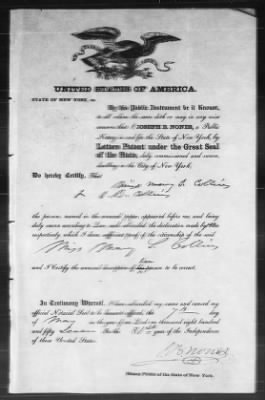 UNITED STATES OF AMERICA.
STATE OF NEW YORK, ss.
By this Public Instrument be it Known,
to all whom the same doth or may in any wise
concern, that I JOSEPH B. NONES, a Public
Notary in and for the State of New York, by
Letters Patent under the Great Seal
of the State, duly commissioned and sworn,
dwelling in the City of New York,
Do hereby Certify, That
Mary Collins
Collins
the persons named in the annexed papers appeared before me, and being
duly sworn according to Law, made and subscribed the declaration
respectively which I deem sufficient proof of the citizenship of the said
Miss Mary Collins
and I Certify the annexed description of person to be correct.
In Testimony Whereof, I have subscribed my name and caused my
official Notarial Seal to be hereunto affixed, the 7th day
of May in the year of our Lord one thousand eight hundred
and fifty Seven the 81st of the Independence
of these United States.
J B Nones
Notary Public of the State of New York.